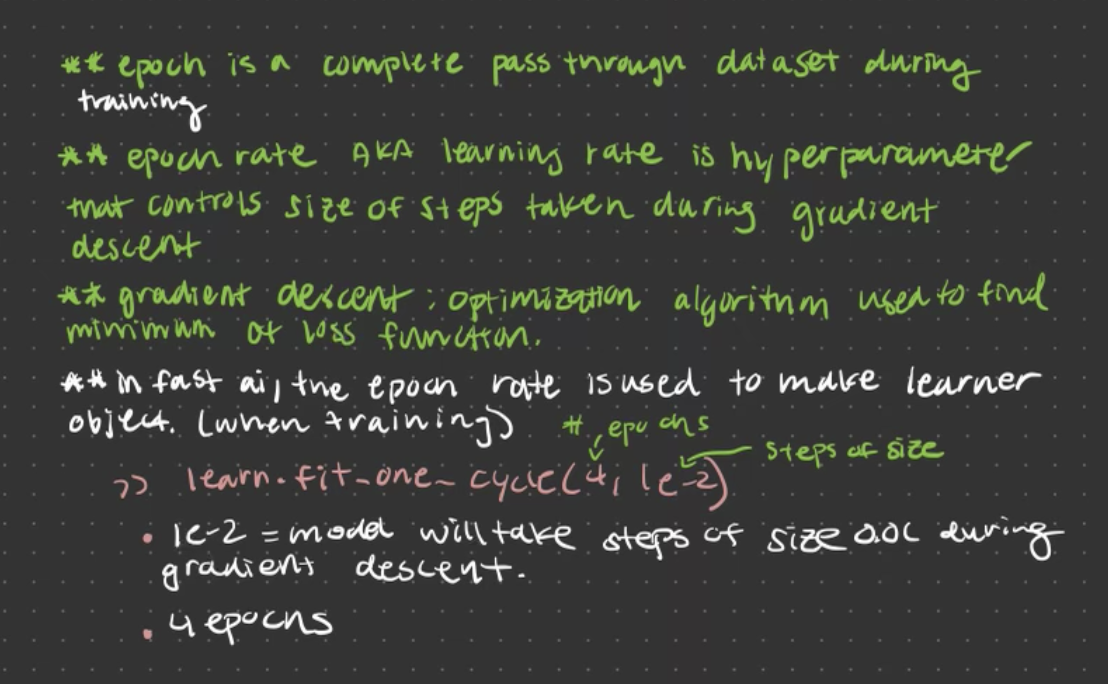 ** epoch is a complete pass through dataset during
training
** epoch rate AKA learning rate is hyperparameter
that controls size of steps taken during gradient
descent
** gradient descent : optimization algorithm used to find
minimum of loss function.
** in fast ai, the epoch rate is used to make learner
object. (when training)
# epochs
steps of size
>> learn.fit_one_cycle(4, 1e-2)
• 1e-2 = model will take steps of size 0.01 during
gradient descent.
• 4 epochs